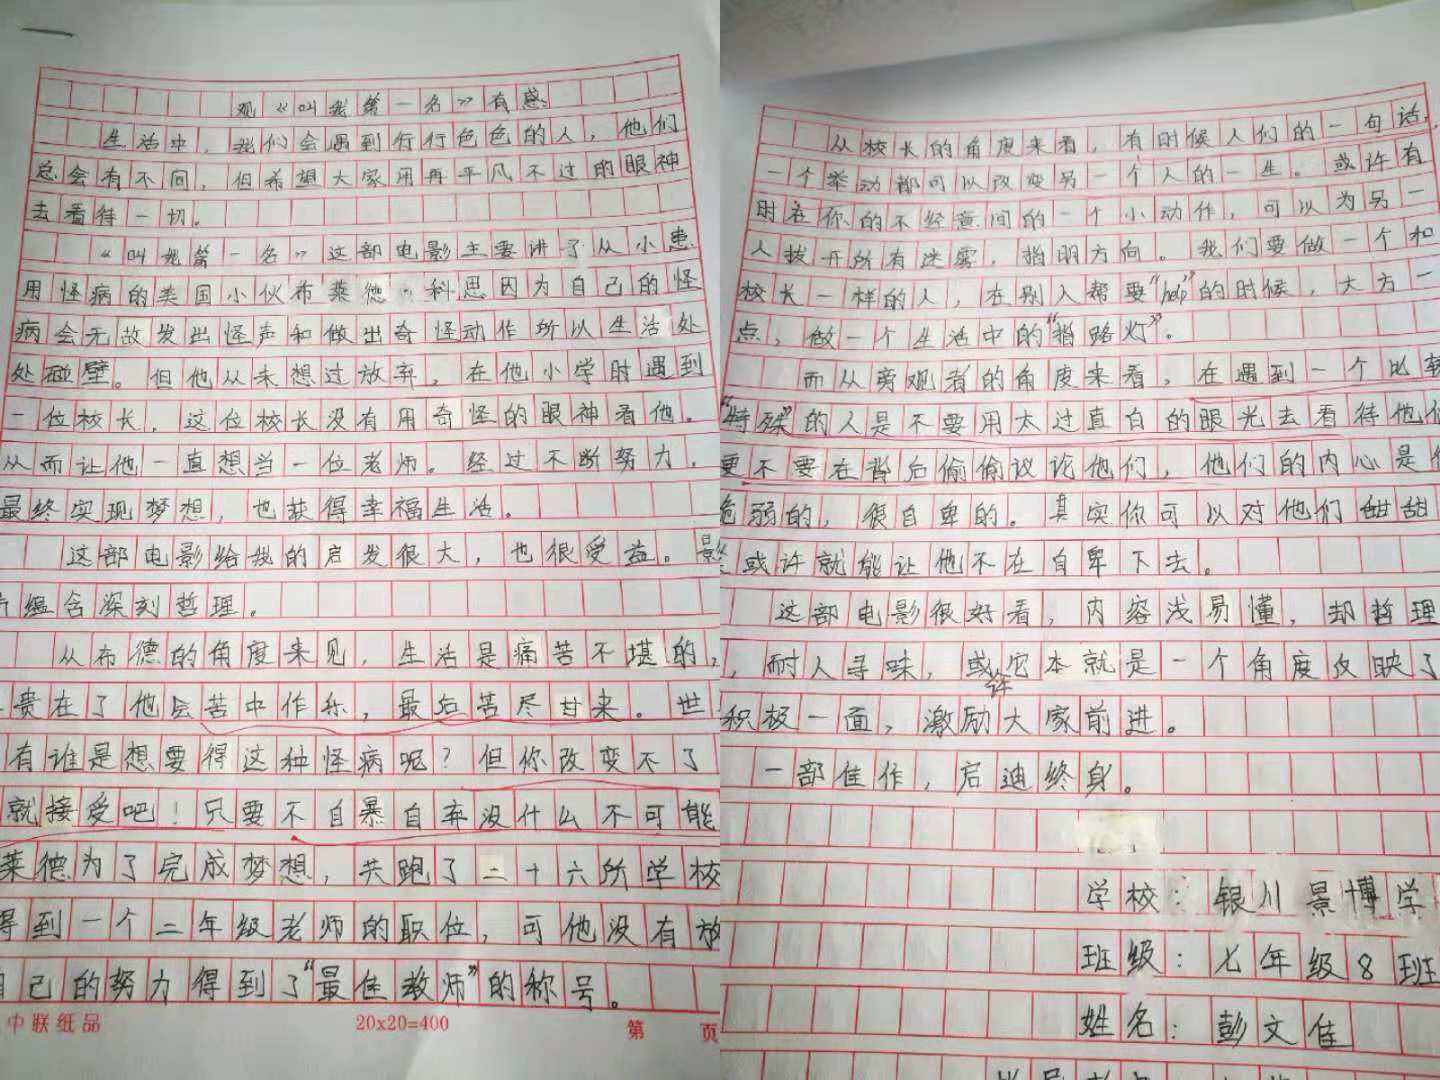 观《叫我第一名》有感
生活中，我们会遇到行行色色的人，他们
总会有不同，但希望大家用再平凡不过的眼神
去看待一切。
《叫我第一名》这部电影主要讲了从小患
用怪病的美国小伙布莱德·科思因为自己的怪
病会无故发出怪声和做出奇怪动作所以生活处
处碰壁。但他从未想过放弃，在他小学时遇到
一位校长，这位校长没有用奇怪的眼神看他。
从而让他一直想当一位老师。经过不断努力，
最终实现梦想，也获得幸福生活。
这部电影给我的启发很大，也很受益。影
片蕴含深刻哲理。
从布德的角度来见，生活是痛苦不堪的，
贵在了他会苦中作乐，最后苦尽甘来。世
有谁是想要得这种怪病呢？但你改变不了
就接受吧！只要不自暴自弃没什么不可能
莱德为了完成梦想，共跑了二十六所学校
得到一个二年级老师的职位，可他没有放
自己的努力得到了“最佳教师”的称号。
中联纸品 20x20=400 第 页
从校长的角度来看，有时候人们的一句话，
一个举动都可以改变另一个人的一生。或许有
时在你的不经意间的一个小动作，可以为另一
人拨开所有迷雾，指明方向。我们要做一个和
校长一样的人，在别人帮要“help”的时候，大方一
点，做一个生活中的“指路灯”。
而从旁观者的角度来看，在遇到一个比较
“特殊”的人是不要用太过直白的眼光去看待他们
更不要在背后偷偷议论他们，他们的内心是很
危弱的，很自卑的。其实你可以对他们甜甜
或许就能让他不在自卑下去。
这部电影很好看，内容浅易懂，却哲理
，耐人寻味，或许它本就是一个角度反映了
积极一面，激励大家前进。
一部佳作，启迪终身。
学校：银川景博学
班级：七年级8班
姓名：彭文佳